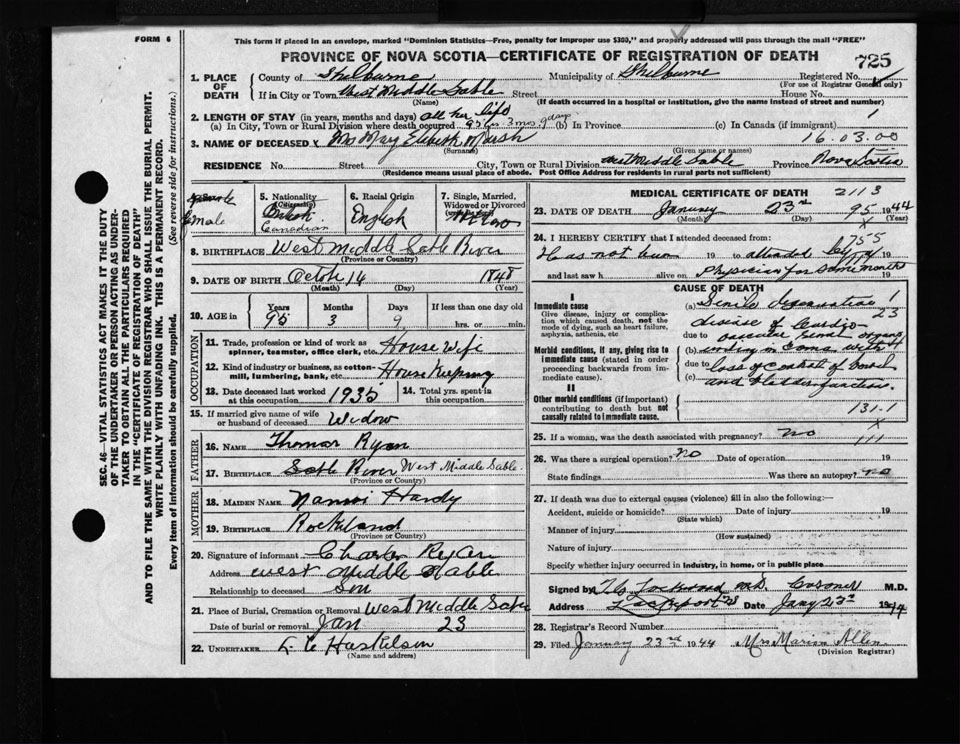 FORM 6
This form if placed in an envelope, marked "Dominion Statistics—Free, penalty for improper use $300," and properly addressed will pass through the mail "FREE"
PROVINCE OF NOVA SCOTIA—CERTIFICATE OF REGISTRATION OF DEATH
725
1. PLACE OF DEATH
County of Shelburne
Municipality of Shelburne
Registered No.
(For use of Registrar General only)
If in City or Town West Middle Sable Street House No.
(Name) (If death occurred in a hospital or institution, give the name instead of street and number)
2. LENGTH OF STAY (in years, months and days) all her life
(a) In City, Town or Rural Division where death occurred 95 yrs 3 mos 9 days (b) In Province (c) In Canada (if immigrant) 1
3. NAME OF DECEASED Mrs May Marsh 16.03.00
(Surname) (Given name or names)
RESIDENCE No. Street City, Town or Rural Division West Middle Sable Province Nova Scotia
(Residence means usual place of abode. Post Office Address for residents in rural parts not sufficient)
female
5. Nationality
(Citizenship)
Canadian
6. Racial Origin
English
7. Single, Married, Widowed or Divorced
8. BIRTHPLACE West Middle Sable River
(Province or Country)
9. DATE OF BIRTH Octob 14 1848
(Month) (Day) (Year)
10. AGE in
Years Months Days If less than one day old
95 3 9 hrs. or min.
OCCUPATION
11. Trade, profession or kind of work as spinner, teamster, office clerk, etc. House Wife
12. Kind of industry or business, as cotton-mill, lumbering, bank, etc. House Keeping
13. Date deceased last worked at this occupation 1935
14. Total yrs. spent in this occupation
15. If married give name of wife or husband of deceased Widow
FATHER
16. NAME Thomas Ryan
17. BIRTHPLACE Sable River West Middle Sable
(Province or Country)
MOTHER
18. MAIDEN NAME Hardy
19. BIRTHPLACE Rockland
(Province or Country)
20. Signature of informant
Address West Middle Sable
Relationship to deceased Son
21. Place of Burial, Cremation or Removal West Middle Sable
Date of burial or removal Jan 23
22. UNDERTAKER
(Name and address)
MEDICAL CERTIFICATE OF DEATH 2113
23. DATE OF DEATH January 23rd 1944
(Month) (Day) (Year)
95
24. I HEREBY CERTIFY that I attended deceased from:
19 to attended 19
and last saw h alive on Physician for some month 19
CAUSE OF DEATH
I
Immediate cause
Give disease, injury or complication which caused death, not the mode of dying, such as heart failure, asphyxia, asthenia, etc.
Morbid conditions, if any, giving rise to immediate cause (stated in order proceeding backwards from immediate cause).
II
Other morbid conditions (if important) contributing to death but not causally related to immediate cause.
(a) Senile
disease of Cardio
due to vascular renal
(b) ending in Coma with
due to loss of control of bowel
(c) and
131-1
25. If a woman, was the death associated with pregnancy? No
26. Was there a surgical operation? No Date of operation 19
State findings Was there an autopsy? no
27. If death was due to external causes (violence) fill in also the following:—
Accident, suicide or homicide? Date of injury 19
(State which)
Manner of injury
(How sustained)
Nature of injury
Specify whether injury occurred in industry, in home, or in public place
Signed by Lockwood M.D. Coroner M.D.
Address Lockeport NS Date Jany 23rd 1944
28. Registrar's Record Number
29. Filed January 23rd 1944 Mrs Marion Allen
(Division Registrar)
SEC. 46—VITAL STATISTICS ACT MAKES IT THE DUTY OF THE UNDERTAKER OR PERSON ACTING AS UNDERTAKER TO OBTAIN ALL THE PARTICULARS REQUIRED IN THE "CERTIFICATE OF REGISTRATION OF DEATH" AND TO FILE THE SAME WITH THE DIVISION REGISTRAR WHO SHALL ISSUE THE BURIAL PERMIT.
WRITE PLAINLY WITH UNFADING INK. THIS IS A PERMANENT RECORD.
Every item of information should be carefully supplied. (See reverse side for instructions.)